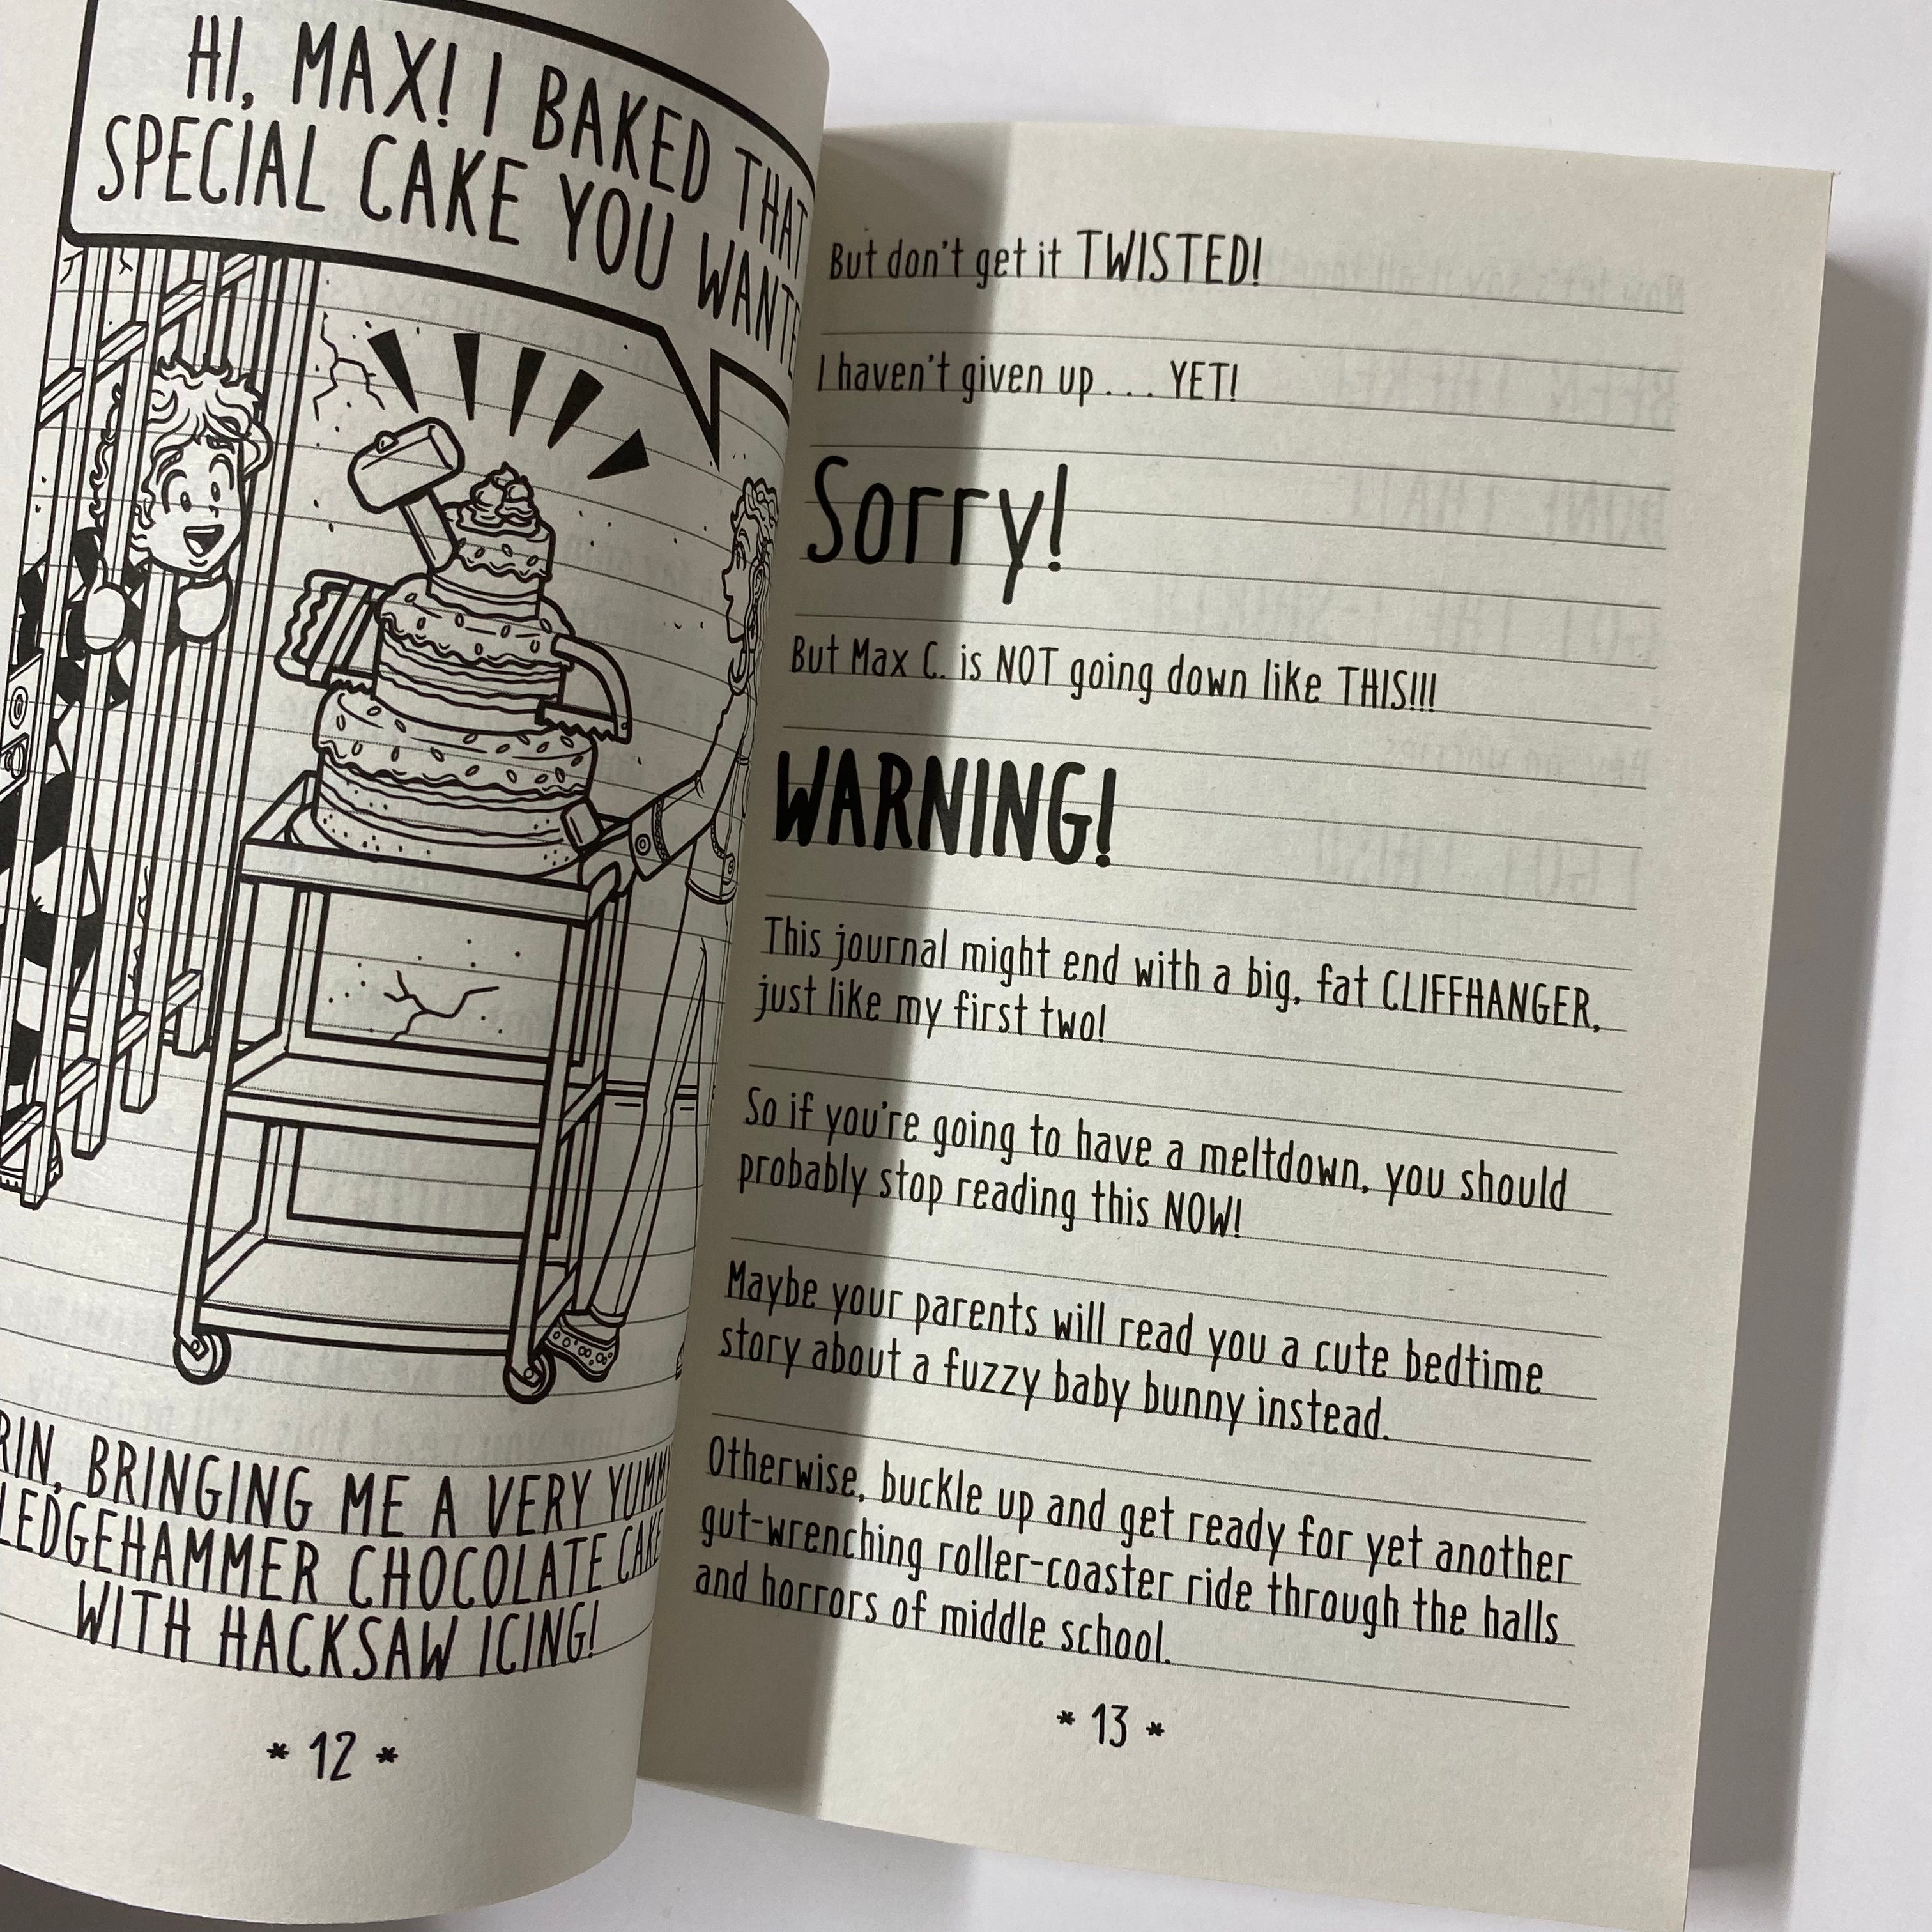 HI, MAX! I BAKED THAT
SPECIAL CAKE YOU
RIN, BRINGING ME A VERY
LEDGEHAMMER CHOCOLATE CAKE
WITH HACKSAW ICING!
* 12 *
But don't get it TWISTED!
I haven't given up . . . YET!
Sorry!
But Max C. is NOT going down like THIS!!!
WARNING!
This journal might end with a big, fat CLIFFHANGER,
just like my first two!
So if you're going to have a meltdown, you should
probably stop reading this NOW!
Maybe your parents will read you a cute bedtime
story about a fuzzy baby bunny instead.
Otherwise, buckle up and get ready for yet another
gut-wrenching roller-coaster ride through the halls
and horrors of middle school.
* 13 *